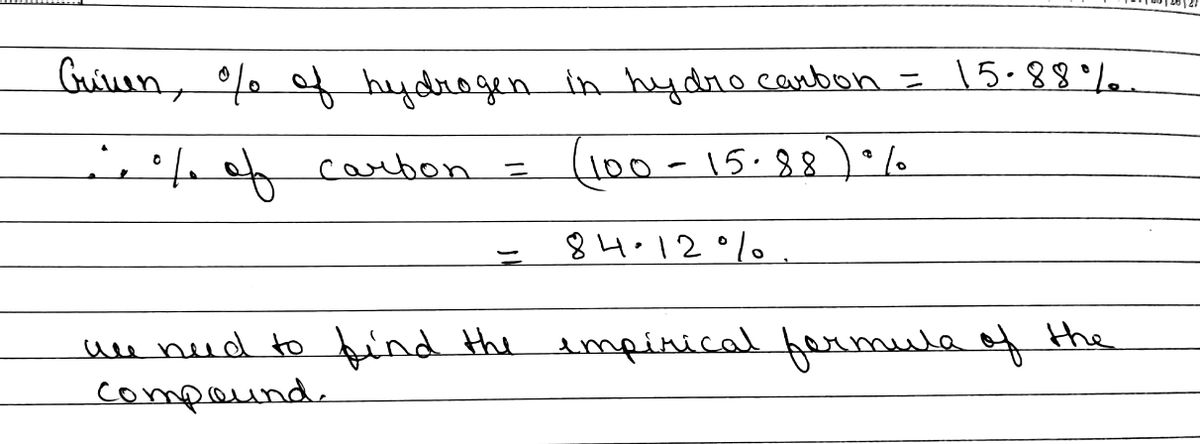 Given, % of hydrogen in hydrocarbon = 15.88%.
∴ % of carbon = (100 - 15.88)%
= 84.12%.
we need to find the empirical formula of the
compound.